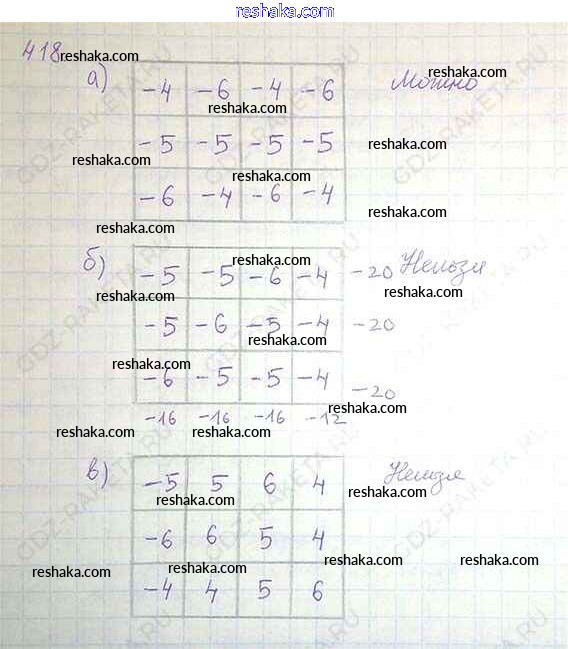 reshaka.com
418 reshaka.com
а) -4 -6 -4 -6 Можно
reshaka.com
reshaka.com
-5 -5 -5 -5
reshaka.com
reshaka.com
-6 -4 -6 -4
reshaka.com
reshaka.com
б) -5 -5 -6 -4 -20 Нельзя
reshaka.com
reshaka.com
reshaka.com
-5 -6 -5 -4 -20
reshaka.com
reshaka.com
-6 -5 -5 -4 -20
reshaka.com
-16 -16 -16 -12
reshaka.com
reshaka.com
в) -5 5 6 4 Нельзя
reshaka.com
reshaka.com
-6 6 5 4
reshaka.com
reshaka.com
reshaka.com
reshaka.com
-4 4 5 6
GDZ-RAKETA.RU